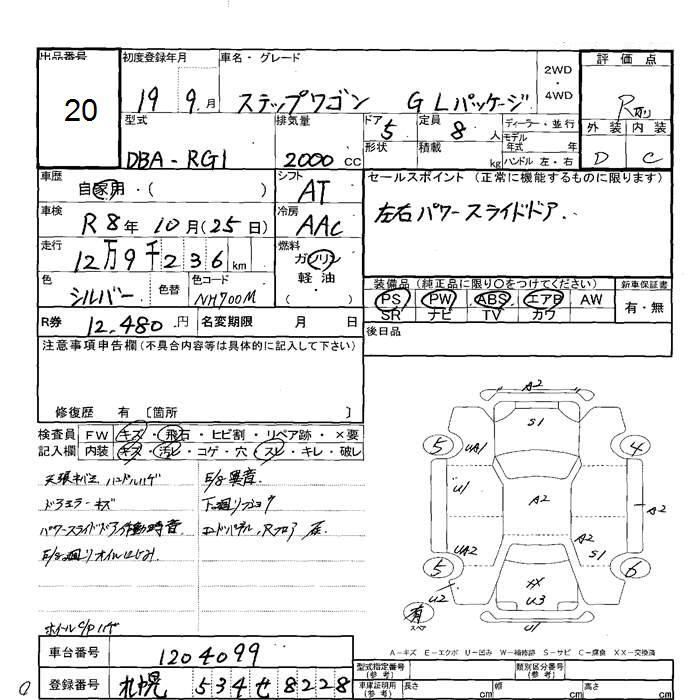 出品番号
20
初度登録年月
19 9.月
車名・グレード
ステップワゴン GLパッケージ
2WD
・
4WD
評価点
R
外装 内装
D C
型式
DBA-RG1
排気量
2000 CC
ドア
5
定員
8 人
形状
積載
kg
ディーラー・並行
モデル
年式 年
ハンドル 左・右
車歴
自家用・( )
シフト
AT
セールスポイント (正常に機能するものに限ります)
左右パワースライドドア.
車検
R8年 10月(25日)
冷房
AAC
走行
12万9千236km
燃料
ガソリン
軽油
( )
色
シルバー
色替
色コード
NH700M
装備品 (純正品に限り○をつけてください)
PS PW ABS エアB AW
SR ナビ TV カワ
新車保証書
有・無
R券 12,480.円
名変期限 月 日
後日品
注意事項申告欄(不具合内容等は具体的に記入して下さい)
修復歴 有 〔箇所 〕
検査員
記入欄
FW キズ・飛石・ヒビ割・リペア跡・×要
内装 キズ・汚レ・コゲ・穴・スレ・キレ・破レ
天張キバミ ハンドルハゲ
ドアミラーキズ
パワースライドドア作動時音
E/g廻りオイルにじみ
ホイールC/Pハゲ
E/g異音
下廻りフショク
エンドパネル,Rフロア
A2
S1
5
4
UA1
U1
A2
A2
UA2
A2
S1
5
6
XX
U3
U2
U1
有
スペア
A-キズ E-エクボ U-凹み W-補修跡 S-サビ C-腐食 XX-交換済
車台番号
1204099
登録番号
札幌 534せ8228
型式指定番号
(参考)
類別区分番号
(参考)
車庫証明用
(参考)
長さ cm
幅 cm
高さ cm